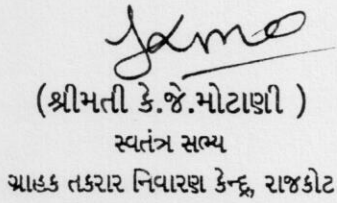 (શ્રીમતી કે.જે.મોટાણી )
સ્વતંત્ર સભ્ય
ગ્રાહક તકરાર નિવારણ કેન્દ્ર, રાજકોટ